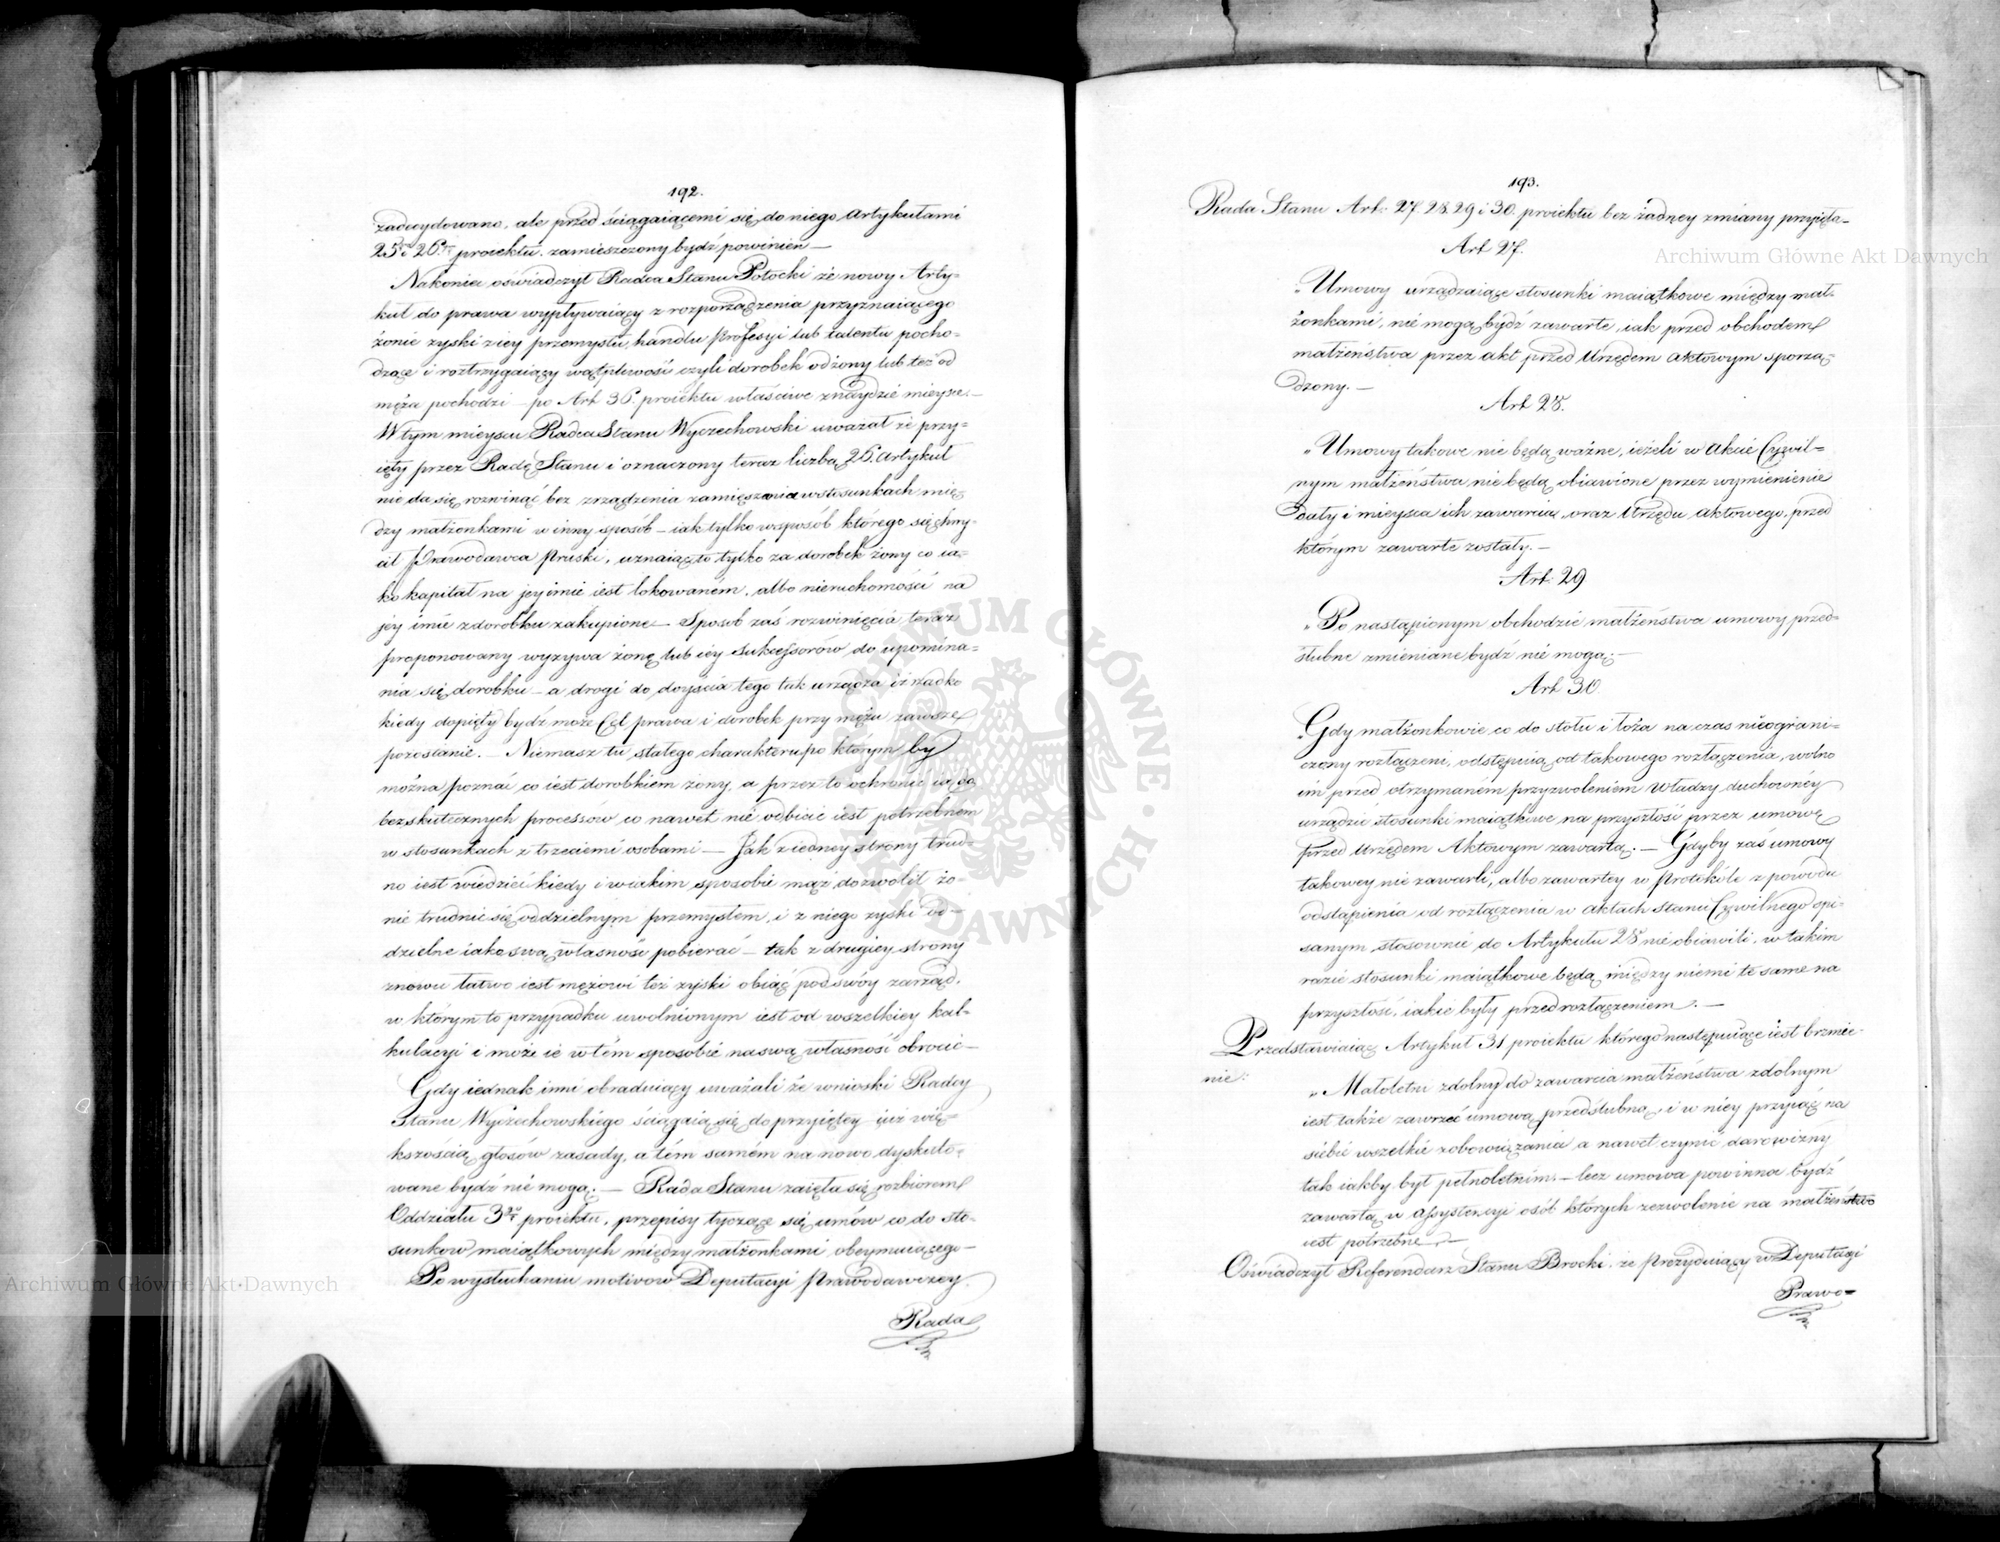 192.
zadecydowano, ale przed ściągaiącemi się do niego artykułami
25 i 26 proiektu zamieszczony bydź powinien —
Nakoniec oświadczył Radca Stanu Potocki że nowy Arty-
kuł do prawa wypływaiący z rozporządzenia przyznaiącego
żonie zyski z iey przemysłu, handlu profesyi lub talentu pocho-
dzące i roztrzygaiący wątpliwość czyli dorobek od żony lub też od
męża pochodzi — po Art 36. proiektu właściwe znaydzie mieysce. —
W tym mieyscu Radca Stanu Wyczechowski uważał że przy-
ięty przez Radę Stanu i oznaczony teraz liczbą 26. artykuł
nie da się rozwinąć bez zrządzenia zamięszania w stosunkach mię-
dzy małżonkami w inny sposób — iak tylko w sposób którego się chwy-
cił Prawodawca Pruski, uznaiąc to tylko za dorobek żony co ia-
ko kapitał na jey imie iest lokowaném, albo nieruchomości na
jey imie z dorobku zakupione — Sposob zaś rozwinięcia teraz
proponowany wyzywa żonę lub iey sukcessorów do upomina-
nia się dorobku — a drogi do doyścia tego tak urządza iż rzadko
kiedy dopięty bydź może Cel prawa i dorobek przy mężu zawsze
pozostanie. — Niemasz tu stałego charakteru po którym by
można poznać co iest dorobkiem żony, a przez to ochronić ią do
bezskutecznych processów, co nawet nie odbicie iest potrzebnem
w stosunkach z trzeciemi osobami — Jak z iedney strony trud-
no iest wiedzieć kiedy i w iakim sposobie mąż dozwolił żo-
nie trudnić się oddzielnym przemysłem, i z niego zyski od-
dzielne iako swą własność pobierać — tak z drugiey strony
znowu łatwo iest mężowi też zyski obiąć pod swóy zarząd,
w którym to przypadku uwolnionym iest od wszelkiey kal-
kulacyi i może ie w tém sposobie na swą własność obrócić —
Gdy iednak inni obraduiący uważali że wnioski Radcy
Stanu Wyczechowskiego ściągaią się do przyiętey iuż więk-
kszością głosów zasady, a tém samém na nowo dyskuto-
wane bydź nie mogą. — Rada Stanu zaięła się rozbiorem
Oddziału 3go proiektu, przepisy tyczące się umów co do sto-
sunków maiątkowych między małżonkami obeymuiącego —
Po wysłuchaniu motivow Deputacyi Prawodawczey
Rada
193.
Rada Stanu Art: 27. 28. 29 i 30. proiektu bez żadney zmiany przyięła —
Art 27.
„Umowy urządzaiące stosunki maiątkowe między mał-
żonkami, nie mogą bydź zawarte, iak przed obchodem
małżeństwa przez akt przed Urzędem aktowym sporzą-
dzony. —
Art 28.
„Umowy takowe nie będą ważne, ieżeli w akcie Cywil-
nym małżeństwa nie będą obiawione przez wymienienie
daty i mieysca ich zawarcia, oraz Urzędu aktowego, przed
którym zawarte zostały. —
Art: 29
„Po nastąpionym obchodzie małżeństwa umowy przed-
ślubne zmieniane bydź nie mogą. —
Art 30.
„Gdy małżonkowie co do stołu i łoża na czas nieograni-
czony rozłączeni, odstępuią od takowego rozłączenia, wolno
im przed otrzymaniem przyzwoleniem władzy duchowney
urządzić stosunki maiątkowe na przyszłość przez umowę
przed Urzędem Aktowym zawartą. — Gdyby zaś umowy
takowey nie zawarli, albo zawartey w Protokóle z powodu
odstąpienia od rozłączenia w aktach stanu Cywilnego spi-
sanym, stosownie do Artykułu 28 nie obiawili, w takim
razie stosunki maiątkowe będą między niemi te same na
przyszłość, iakie były przed rozłączeniem. —
Przedstawiaiąc Artykuł 31 proiektu którego następuiące iest brzmie-
nie:
„Małoletni zdolny do zawarcia małżeństwa zdolnym
iest także zawrzeć umową przedślubną, i w niey przyiąć na
siebie wszelkie zobowiązania a nawet czynić darowizny
tak iakby był pełnoletnim — lecz umowa powinna bydź
zawartą w assystencyi osób których zezwolenie na małżeństwo
iest potrzebne. —
Oświadczył Referendarz Stanu Brocki że Prezyduiący w Deputacyi
Prawo-
ARCHIWUM GŁÓWNE AKT DAWNYCH
Archiwum Główne Akt Dawnych
Archiwum Główne Akt Dawnych